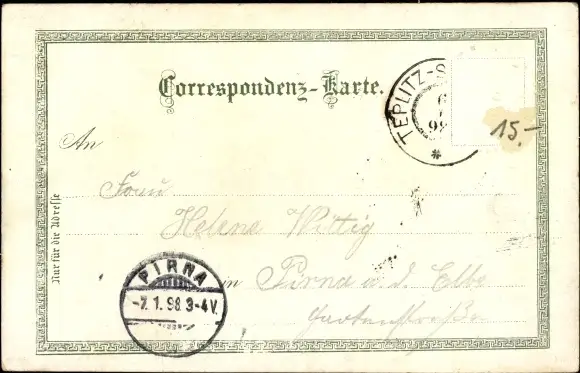 Correspondenz-Karte.
TEPLITZ-S
6
98
*
15.-
An
Frau
Helene Wittig
in Pirna a. d. Elbe
Gartenstraße
Nur für die Adresse
PIRNA
-7.1.98.3-4V.